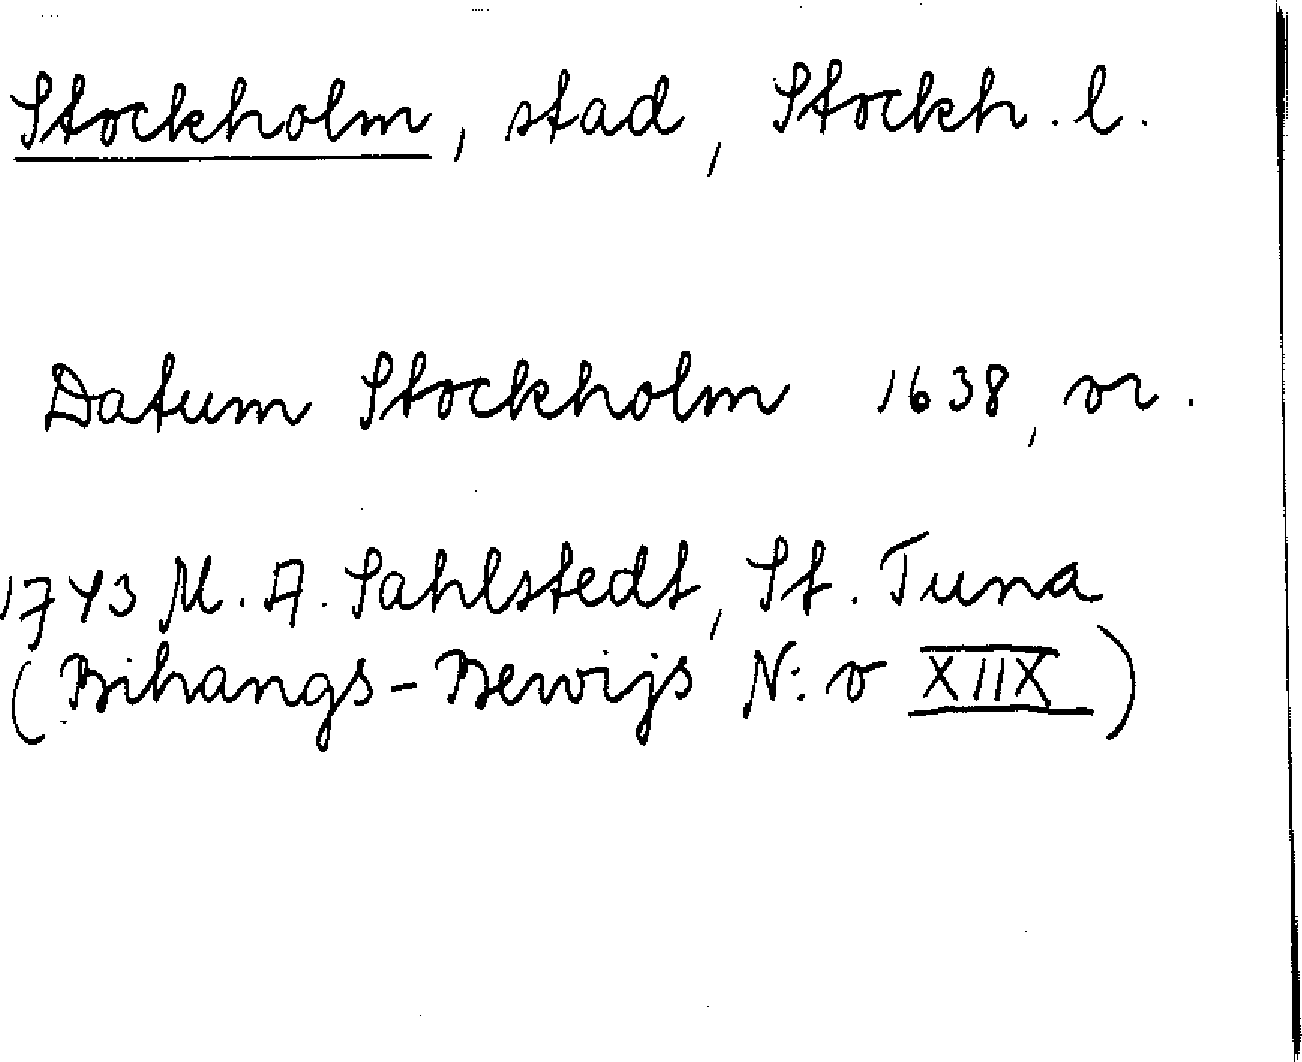 Stockholm, stad, Stockh. l.
Datum Stockholm 1638, or.
1743 M. A. Sahlstedt, St. Tuna
(Bihangs-Bewijs N:o XIIX)